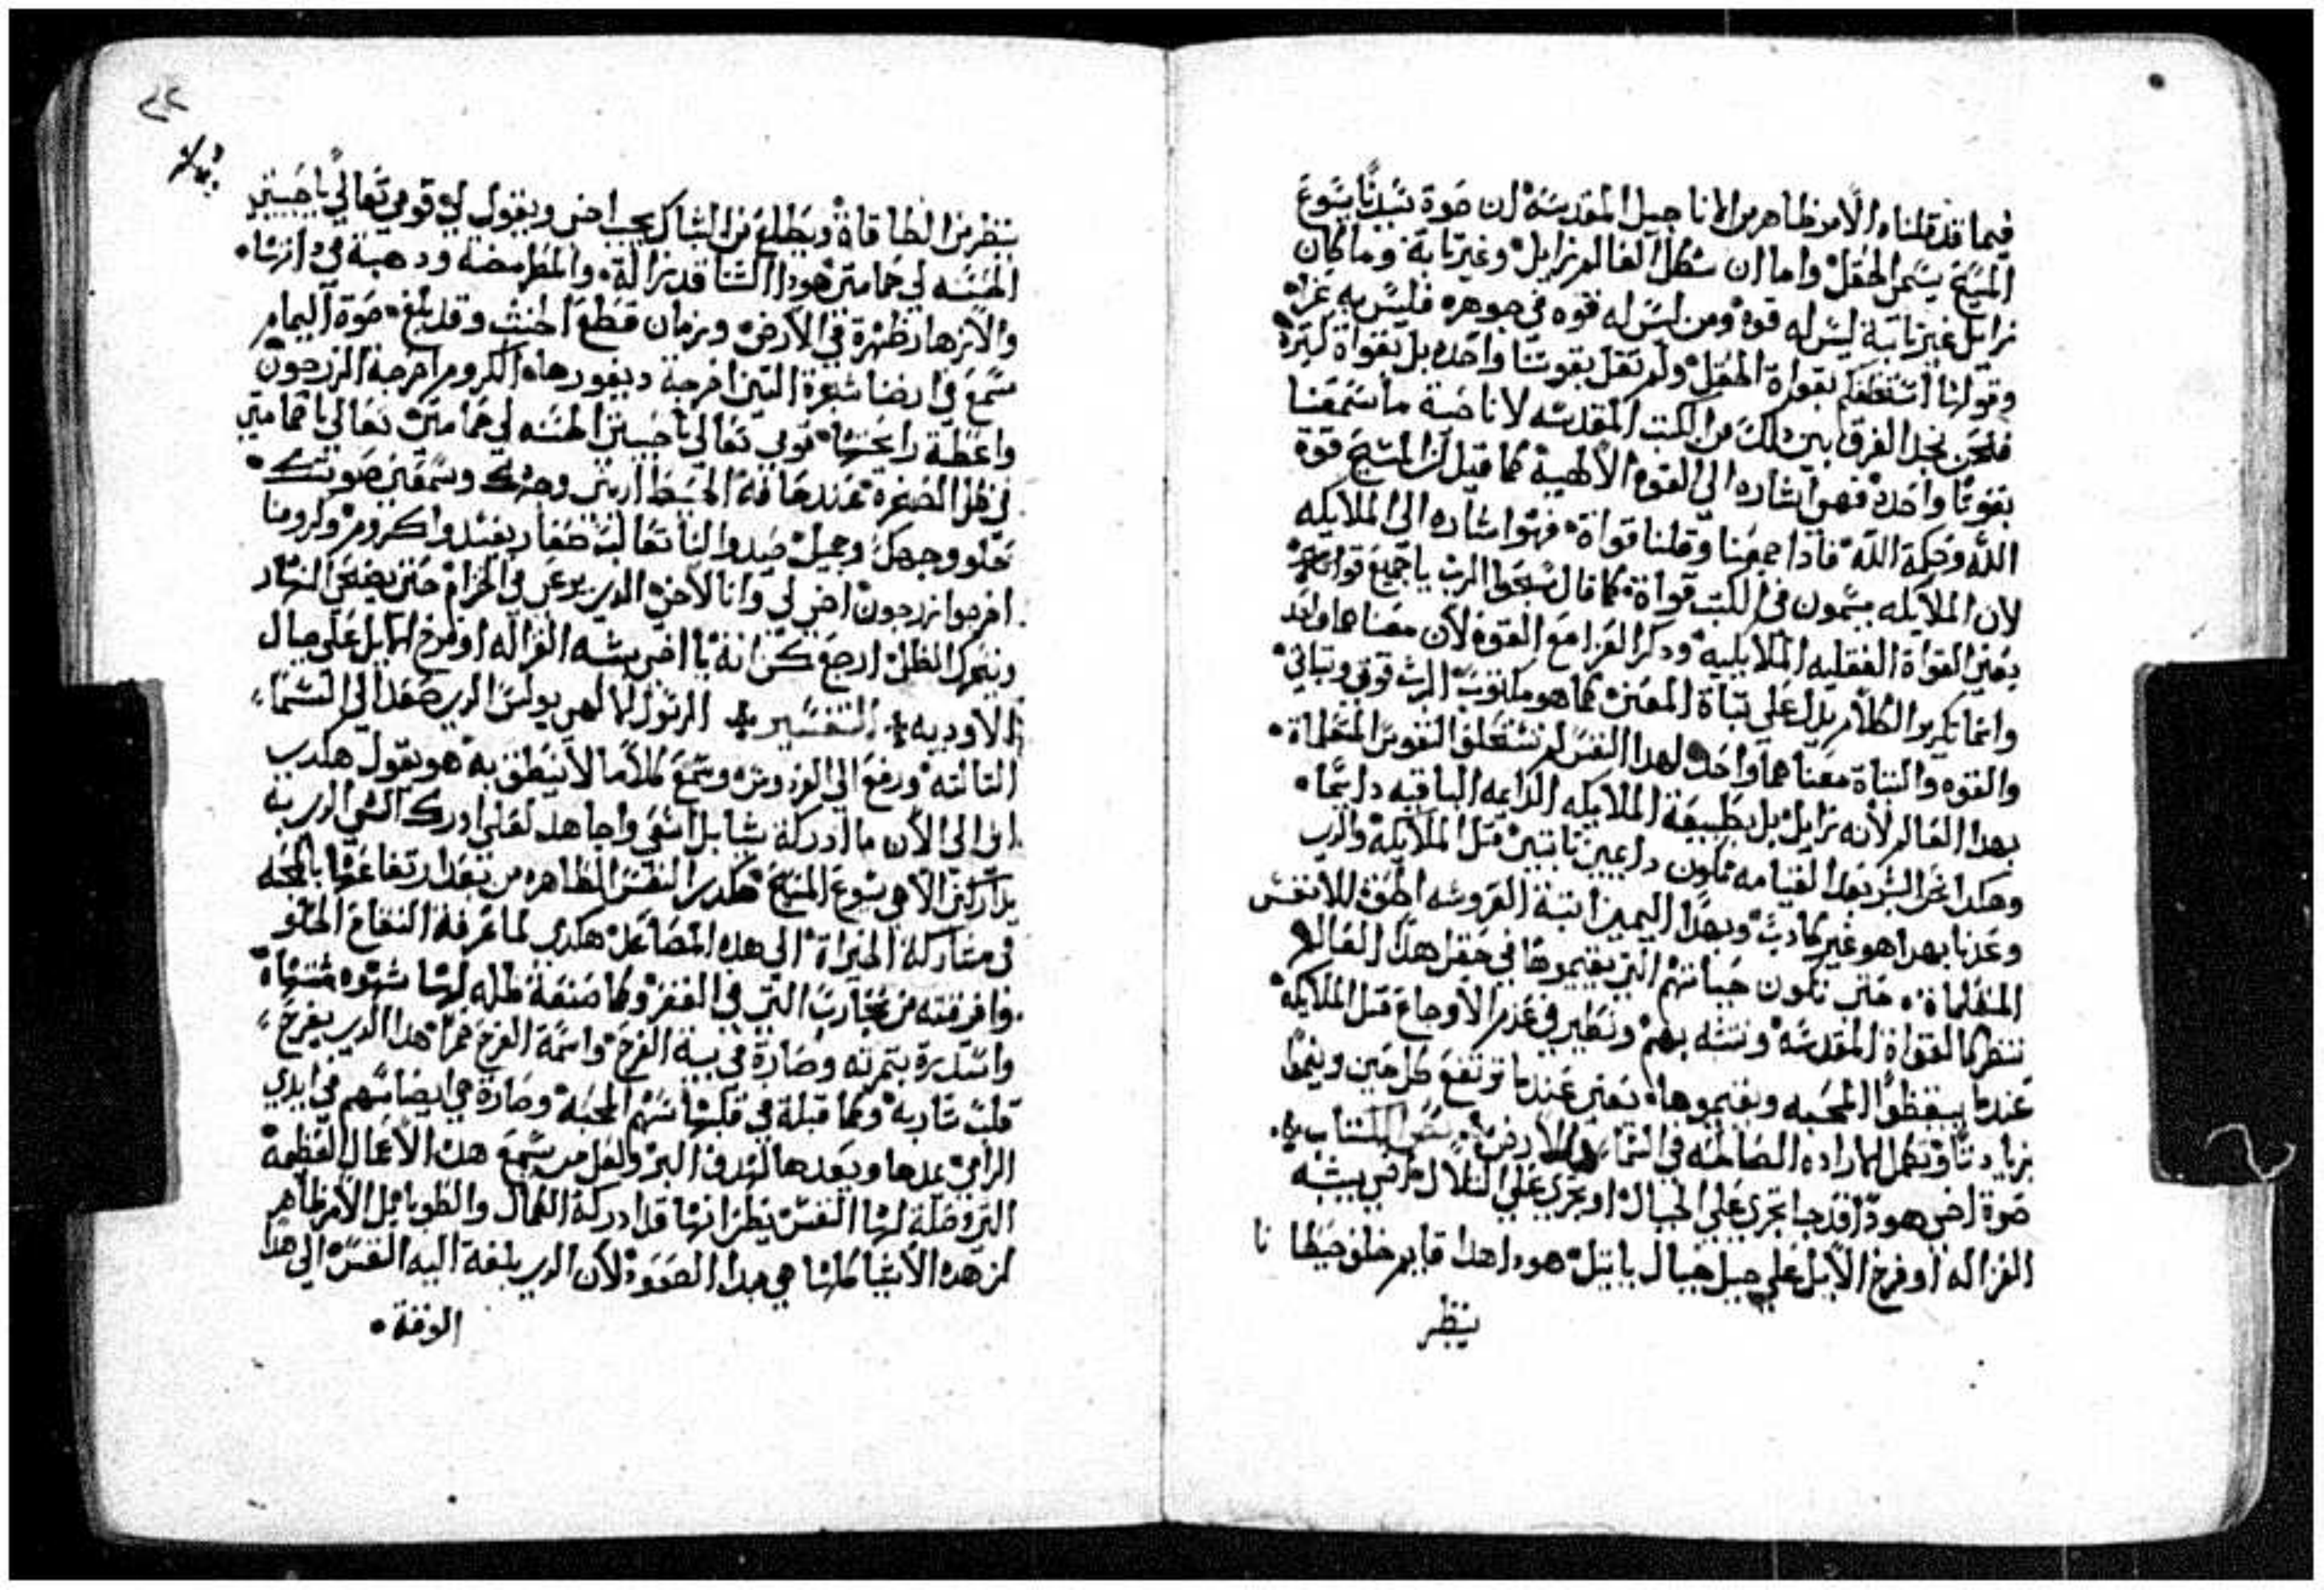 فيما قد قلناه الامر ظاهر من الاناجيل المقدسه ان صوة سيدنا يسوع
المسيح يسمى الحقل واما ان شكل العالم زايل وغير تابة وما كان
زايل غير تابة ليس له قوه ومن ليس له قوه في جوهره فليس به عزاه
وقولها استحلفكم بقواة الحقل ولم تقل بقوتنا واحده بل بقواة كتيرة
فلنحن نجد الفرق بين دلك من الكتب المقدسه لانا حيت ما سمعنا
بقوتا واحدة فهو اشاره الي القوه الالهية كما قيل ان المسيح قوة
الله وحكمة الله فادا جمعنا وقلنا قواة فهوا اشاره الي الملايكه
لان الملايكه يسمون في الكتب قواة كما قال سبحوا الرب يا جميع قواته
يعني القواة العقليه الملايكيه ودكر العزا مع القوه لان معناهما واحد
وانما تكرير الكلام يدل على تباة المعنى كما هو مكتوب الرب قوتي وتباتي
والقوه والتباة معناهما واحد لهدا النفس لم تستحلف النفوس المتعلماة
بهدا العالم لانه زايل بل بطبيعة الملايكه الدايمه الباقيه دايما
وهكدا نحن البشر بعد القيامه نكون دايمين تابتين متل الملايكة والدي
وعدنا بهدا هو غير كادب وبهدا اليمين ابتة العروسه الحق للانفس
المتعلماة حتى تكون حياتهم التي يقيموها في حقل هدا العالم
تنظر كالقواة المقدسه وتتشبه بهم وتصير في عدم الاوجاع متل الملايكة
عندما يستيقظوا المحبه ويقيموها يعني عندما ترتفع كل حين وينموا
بزيادتا وتكمل الاراده الصالحه في السما والارض نص الكتاب
صوة اخي هودا قد جا يجري على الجبال او يجري على التلال اخي يشبه
الغزاله او فرخ الايل على جبل جبال بايتيل هودا هدا قايم خلف حيطانا
ينظر
ينظر من الطاقاة ويطلع من الشباك يجيب اخي ويقول لي قومي تعالي يا حبيبتي
الحسنه لي حمامتي هودا الشتا قد زالة والمطر مضه ودهبة في اترها
والازهار ظهرة في الارض وزمان قطع الخشب وقد بلغ صوة اليمام
سمع في ارضنا شجرة التين اخرجة ديفورهاه الكروم اخرجة الزرجون
واعطة رايحتها قومي تعالي يا حبيبتي الحسنه لي حمامتي تعالي يا حمامتي
في ظل الصخرة عند حافة الحيط اريني وجهك وسمعيني صوتك
حلو وجهك وجميل صيدوا لنا تعالب صغار يفسدوا كروم وكرومنا
اخرجوا زرجون اخي لي وانا لاخي الدي يرعى في الخزام حتى يضحى النهار
ويتحرك الظل ارجع كن انة يا اخي يشبه الغزاله او فرخ الايل على جبال
الاودية التفسير الرسول الالهي بولس الدي صعد الى السما
التالته ورفع الي الفردوس وسمع كلاما لا ينطق به هو يقول هكدي
اني الي الان ما ادركة شيا بل اسعى واجاهد لعلي ادرك الشي الدي به
يداركني الاهي يسوع المسيح هكدي النفس الطاهره من بعد ارتفاعها بالمحبه
في مشاركة الخيراة الي هده المصاعد هكدي لما عرفة التفاح الحلو
وافرقته من تجارب التي في القفر وكما صنعة ظله لها شهوه مشتهاة
واستدرة بتمرته وصارة في بية الفرح واسمة الفرح خمرا هدا الدي يفرح
قلب شاربه وكما قبلة في قلبها سهم المحبة وصارة هي ايضا سهم في ايدي
الرامي يمدها ويعدها لهدف البر ولعل من سمع هده الاعمال العظيمة
التي وصلة لها النفس يظن انها قد ادركة الكمال والطوبا بل الامر ظاهر
ان هده الاشيا كلها هي مبدا الصعود لان الدي بلغة اليه النفس الي هدا
الوقتة